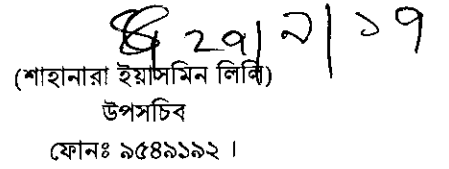 ২৭/২/১৭
(শাহানারা ইয়াসমিন লিলি)
উপসচিব
ফোনঃ ৯৫৪৯১৯২ ।